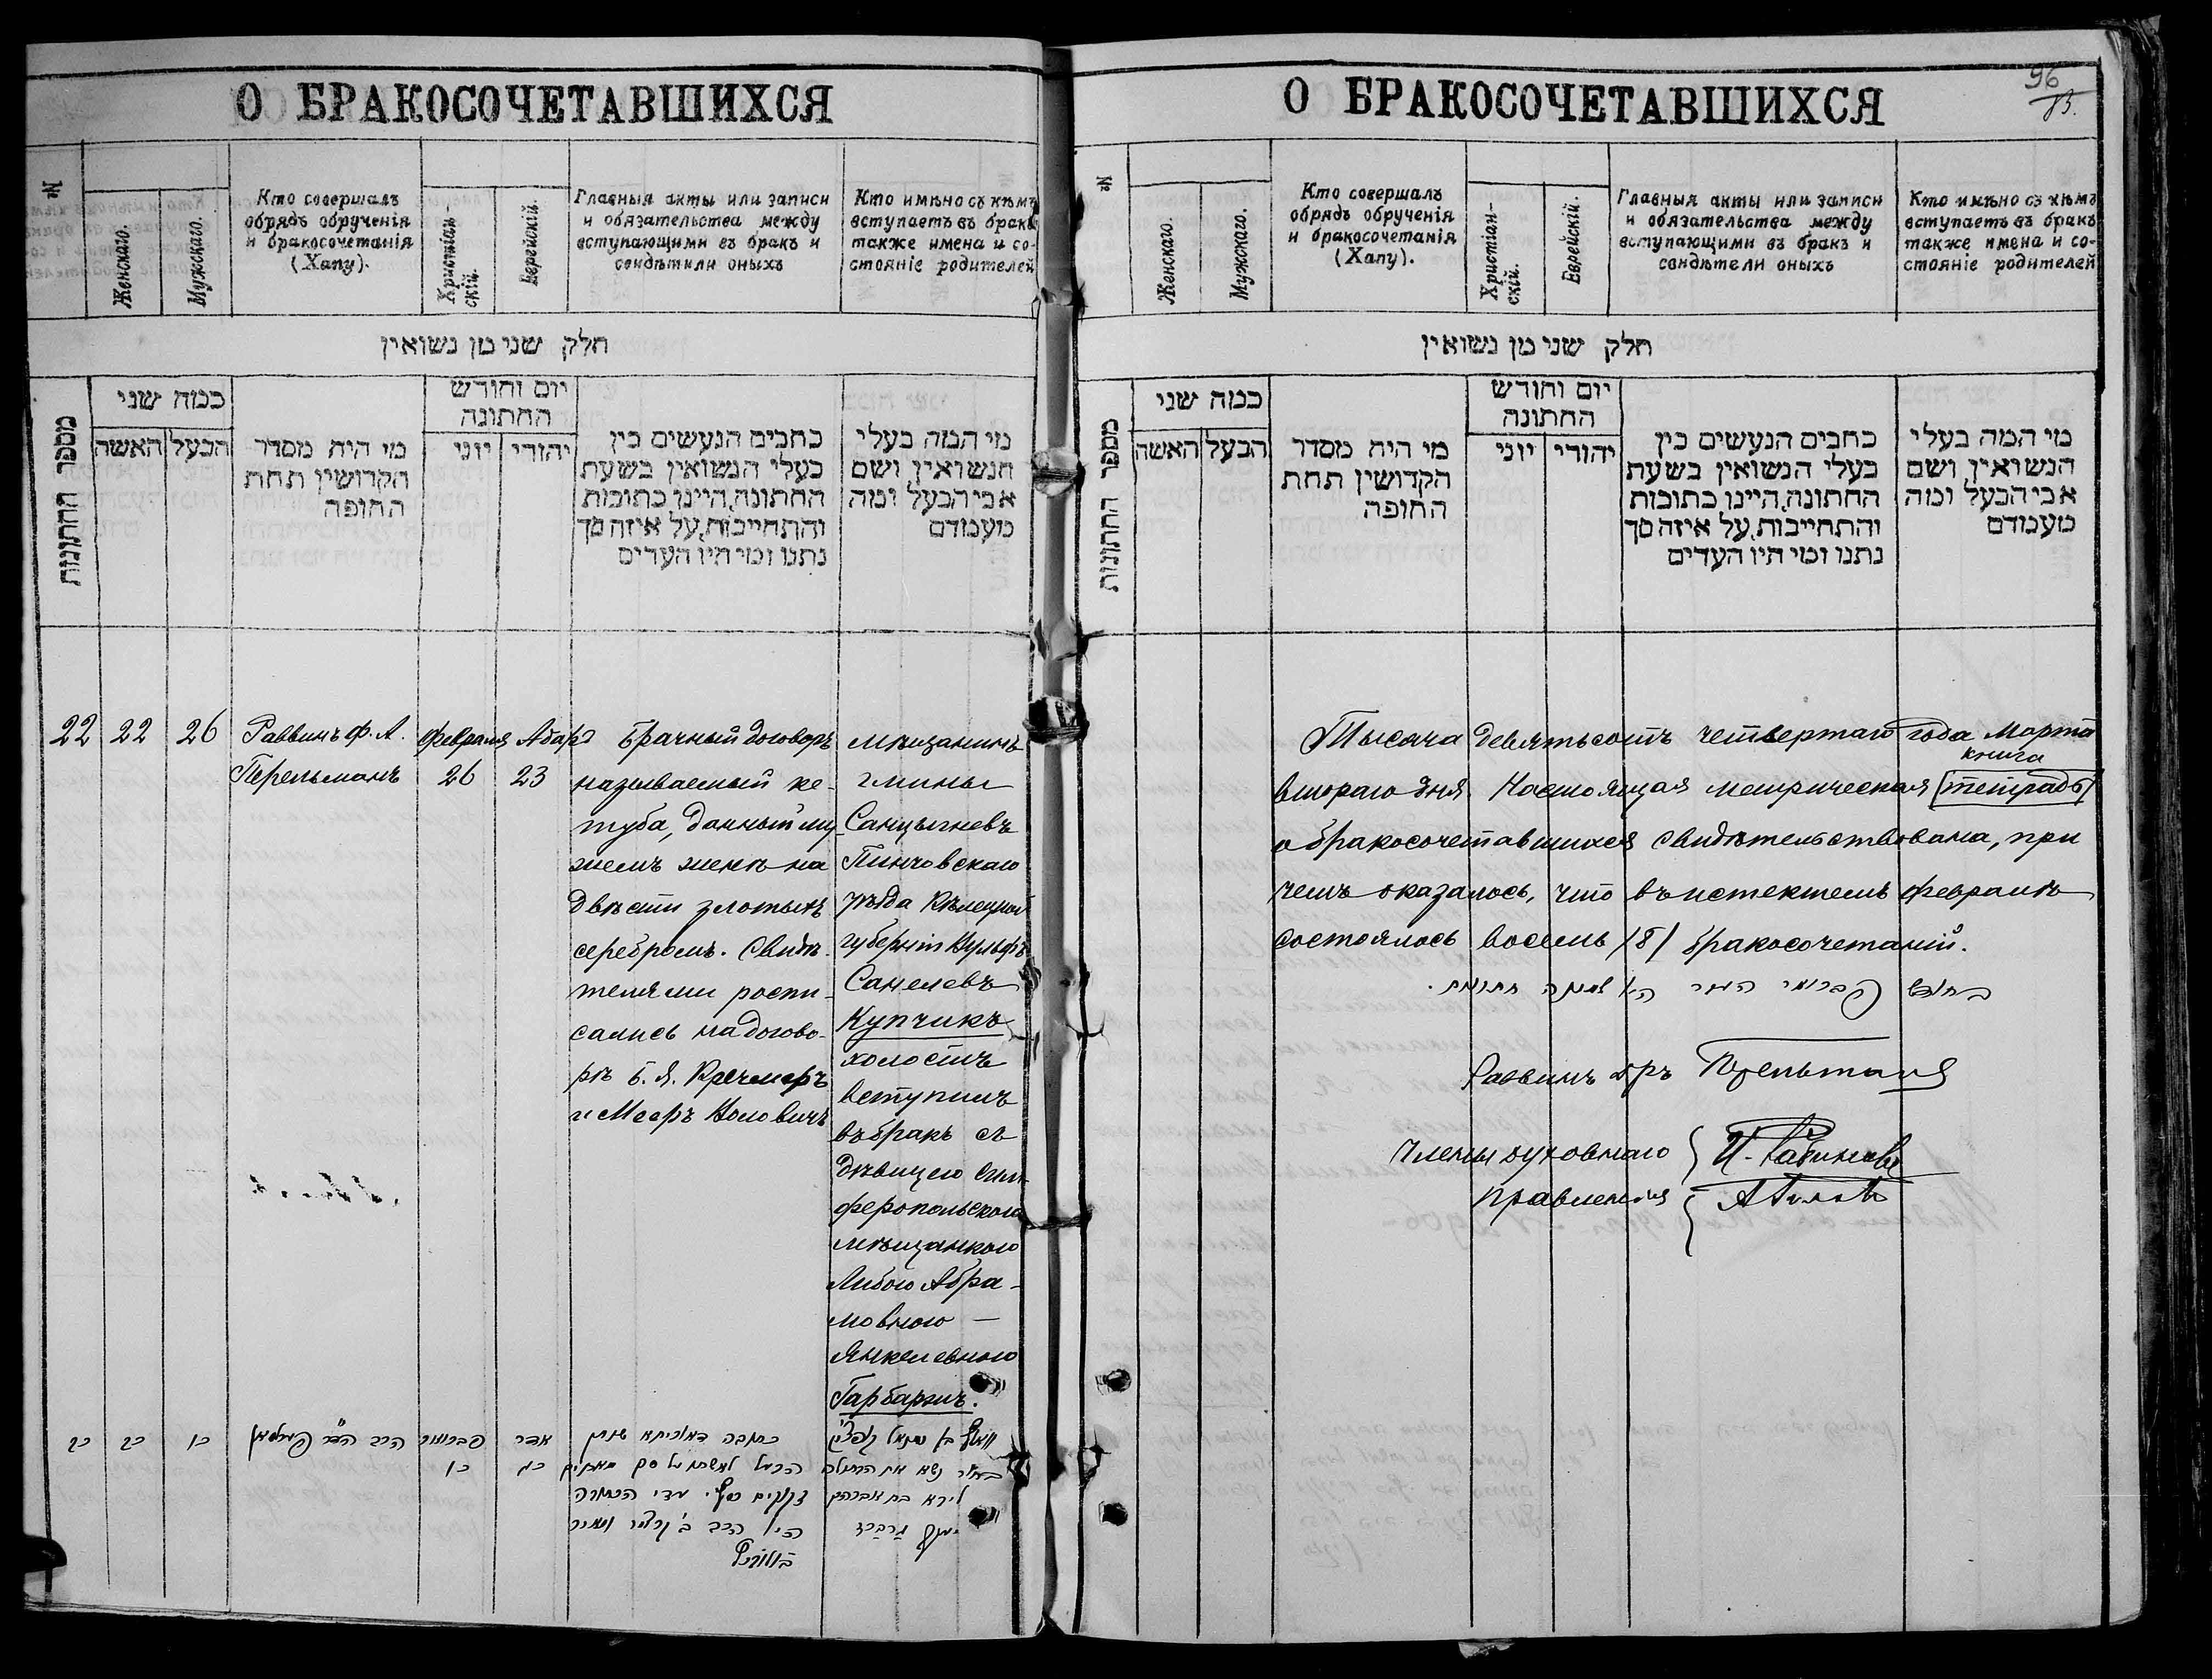 О БРАКОСОЧЕТАВШИХСЯ
№
Женскаго.
Мужскаго.
Кто совершалъ
обрядъ обрученія
и бракосочетанія
(Хапу).
Христіан-
скій.
Еврейскій.
Главныя акты или записи
и обязательства между
вступающими въ бракъ и
свидѣтили оныхъ
Кто имѣно съ кѣмъ
вступаетъ въ бракъ
также имена и со-
стояніе родителей
חלק שני מן נשואין
מספר החתונות
כמה שני
האשה
הבעל
מי הית מסדר
הקדושין תחת
החופה
יום וחודש
החתונה
יוני
יהודי
כתבים הנעשים בין
בעלי הנשואין בשעת
החתונה, היינו כתובות
והתחייבות, על איזה סך
נתנו ומי היו העדים
מי המה בעלי
הנשואין ושם
אבי הבעל ומה
מעמדם
22
22
26
Раввинъ Ф. А.
Перельманъ
Февраля
26
Адара
23
Брачный договоръ
называемый ке-
туба, данный му-
жемъ женѣ на
двѣсти злотыхъ
серебромъ. Свидѣ-
телями роспи-
сались на догово-
рѣ Б. Я. Кречмеръ
и Мееръ
мѣщанинъ
гмины
Санцыгневъ
Пинчовскаго
уѣзда Кѣлецкой
губерніи Вульфъ
Санелевъ
Купчикъ
холостъ
вступилъ
въ бракъ съ
дѣвицею Сим-
феропольскою
мѣщанкою
Либою Абра-
мовною —
Янкелевною
Гарбаржъ.
כב
כב
כו
הרב
פברואר
כו
אדר
כג
כתובה
הבעל
בן
נשא את הבתולה
בת אברהם
О БРАКОСОЧЕТАВШИХСЯ
96
№
Женскаго.
Мужскаго.
Кто совершалъ
обрядъ обрученія
и бракосочетанія
(Хапу).
Христіан-
скій.
Еврейскій.
Главныя акты или записи
и обязательства между
вступающими въ бракъ и
свидѣтели оныхъ
Кто имѣно съ кѣмъ
вступаетъ въ бракъ
также имена и со-
стояніе родителей
חלק שני מן נשואין
מספר החתונות
כמה שני
האשה
הבעל
מי הית מסדר
הקדושין תחת
החופה
יום וחודש
החתונה
יוני
יהודי
כתבים הנעשים בין
בעלי הנשואין בשעת
החתונה, היינו כתובות
והתחייבות, על איזה סך
נתנו ומי היו העדים
מי המה בעלי
הנשואין ושם
אבי הבעל ומה
מעמדם
Тысяча девятьсотъ четвертаго года Марта
книга
второго дня. Настоящая метрическая [тетрадь]
о бракосочетавшихся свидѣтельствована, при
чемъ оказалось, что въ истекшемъ февралѣ
состоялось восемь /8/ бракосочетаній.
בחודש פברואר היו שמנה חתונות.
Раввинъ дръ Перельманъ
Члены духовнаго
правленія